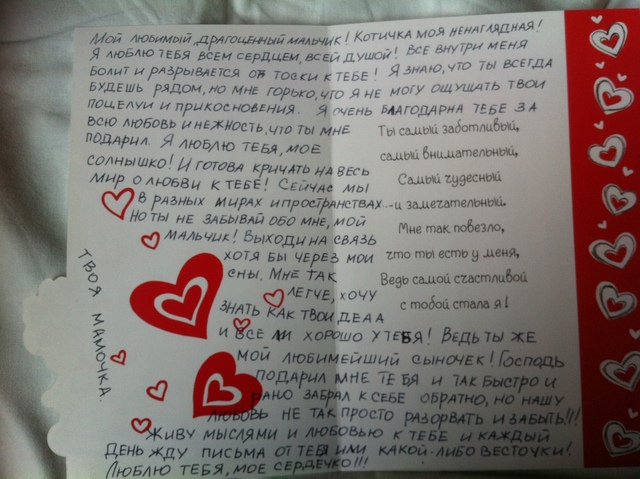 Мой любимый, драгоценный мальчик! Котичка моя ненаглядная!
Я люблю тебя всем сердцем, всей душой! Все внутри меня
болит и разрывается от тоски к тебе! Я знаю, что ты всегда
будешь рядом, но мне горько, что я не могу ощущать твои
поцелуи и прикосновения. Я очень благодарна тебе за
всю любовь и нежность, что ты мне
подарил. Я люблю тебя, мое
солнышко! И готова кричать на весь
мир о любви к тебе! Сейчас мы
в разных мирах и пространствах...
Но ты не забывай обо мне, мой
мальчик! Выходи на связь
хотя бы через мои
сны. Мне так
легче, хочу
знать как твои дела
и все ли хорошо у тебя! Ведь ты же
мой любимейший сыночек! Господь
подарил мне тебя и так быстро и
рано забрал к себе обратно, но нашу
любовь не так просто разорвать и забыть!!!
Живу мыслями и любовью к тебе и каждый
день жду письма от тебя или какой-либо весточки!
Люблю тебя, мое сердечко!!!
Твоя мамочка.
Ты самый заботливый,
самый внимательный,
Самый чудесный
-и замечательный.
Мне так повезло,
что ты есть у меня,
Ведь самой счастливой
с тобой стала я!